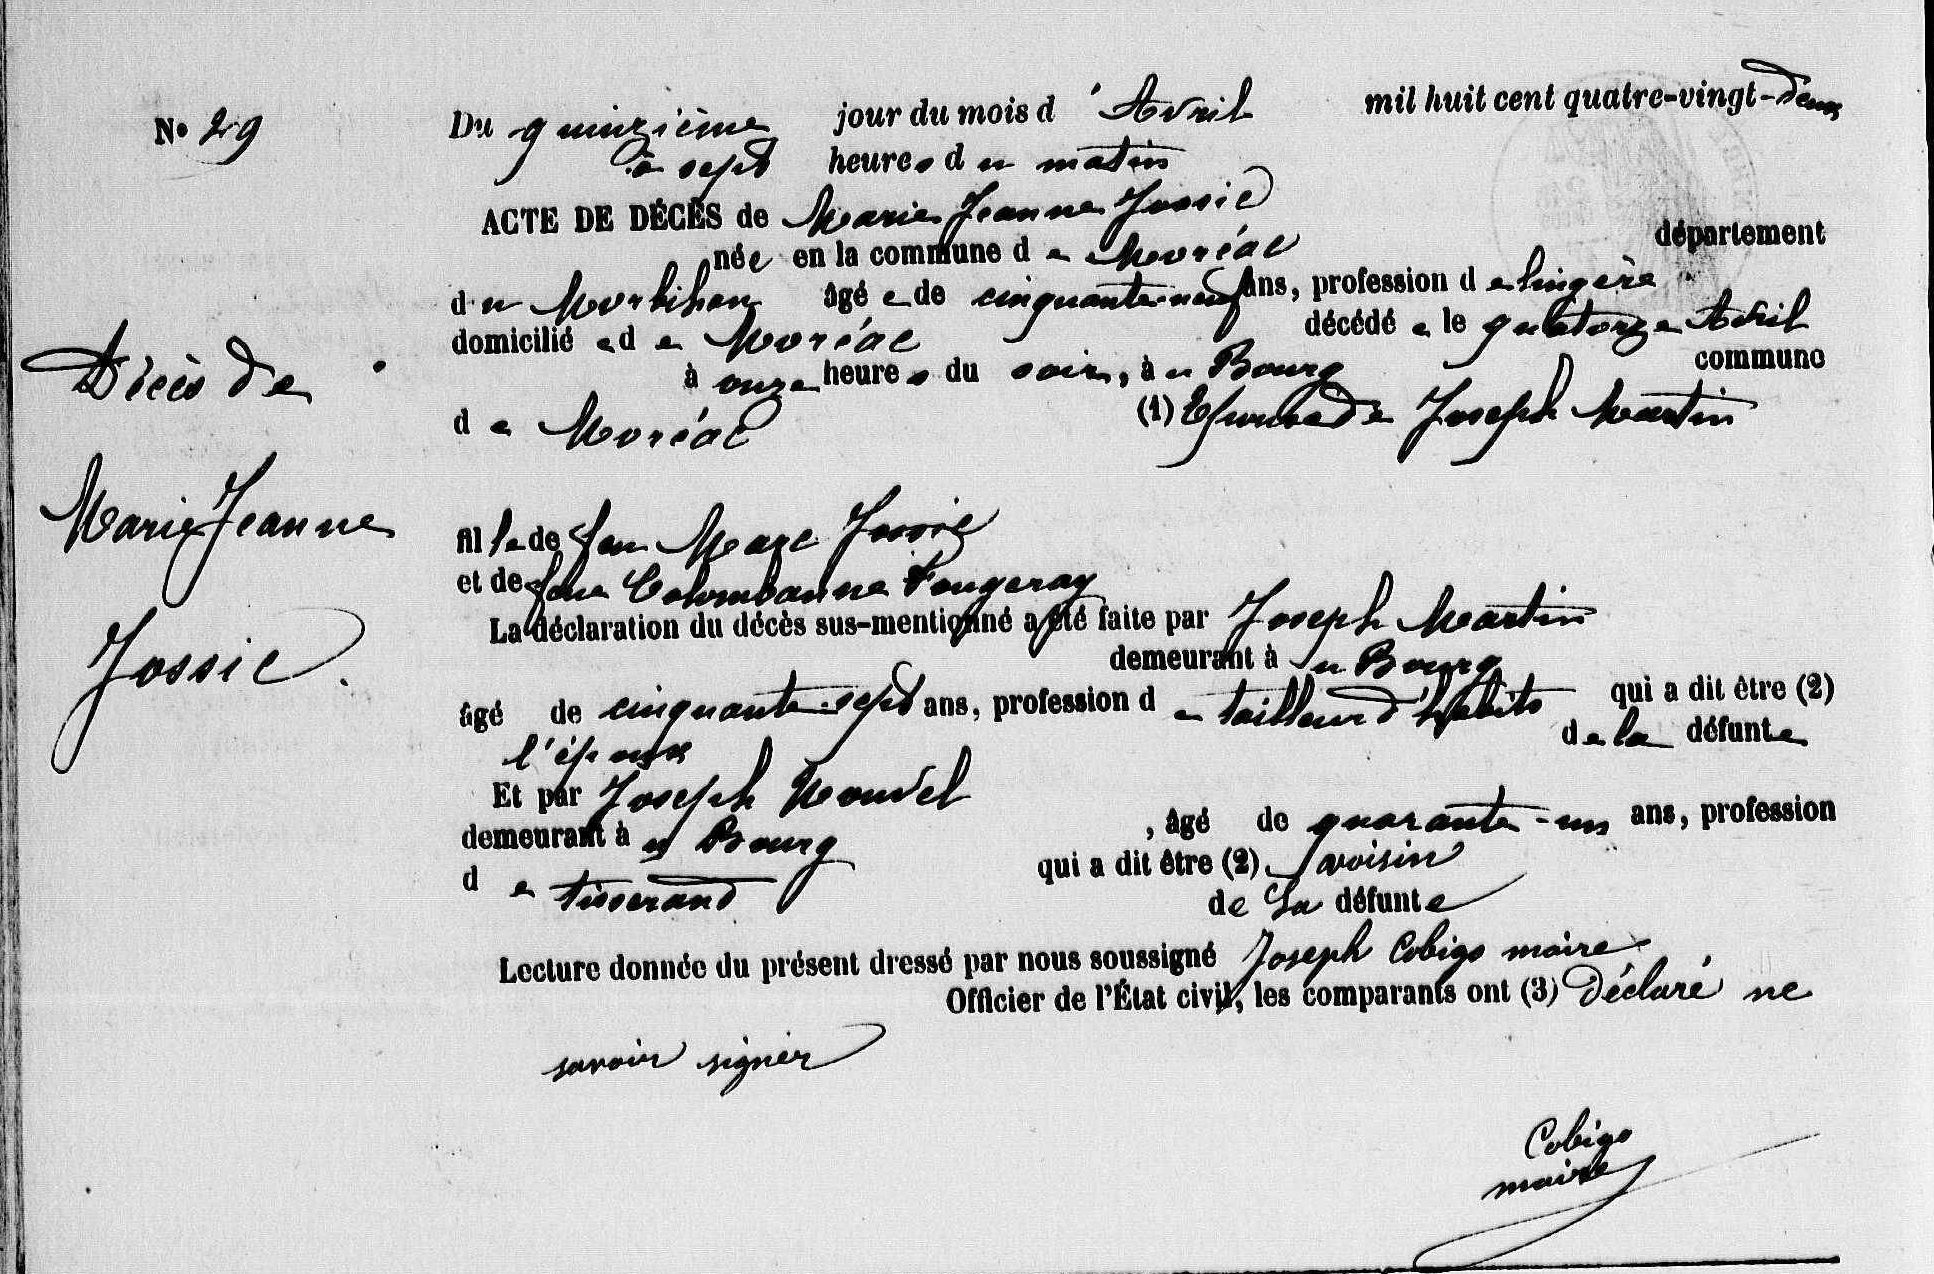 No 29
Décès de
Marie Jeanne
Jossic.
Du quinzième jour du mois d'Avril mil huit cent quatre-vingt-deux
à sept heures du matin
ACTE DE DÉCÈS de Marie Jeanne Jossic
née en la commune de Moréac département
du Morbihan âgée de cinquante-neuf ans, profession de lingère
domiciliée de Moréac décédée le quatorze Avril
à onze heures du soir, au Bourg commune
de Moréac (1) Epouse de Joseph Martin
fille de feu Marc Jossic
et de feue Colombanne Fougeray
La déclaration du décès sus-mentionné a été faite par Joseph Martin
demeurant au Bourg
âgé de cinquante-sept ans, profession de tailleur d'habits qui a dit être (2)
l'époux de la défunte
Et par Joseph Nouvel
demeurant au Bourg, âgé de quarante-un ans, profession
de tisserand qui a dit être (2) voisin
de la défunte
Lecture donnée du présent dressé par nous soussigné Joseph Cobigo maire
Officier de l'État civil, les comparants ont (3) déclaré ne
savoir signer
Cobigo
maire